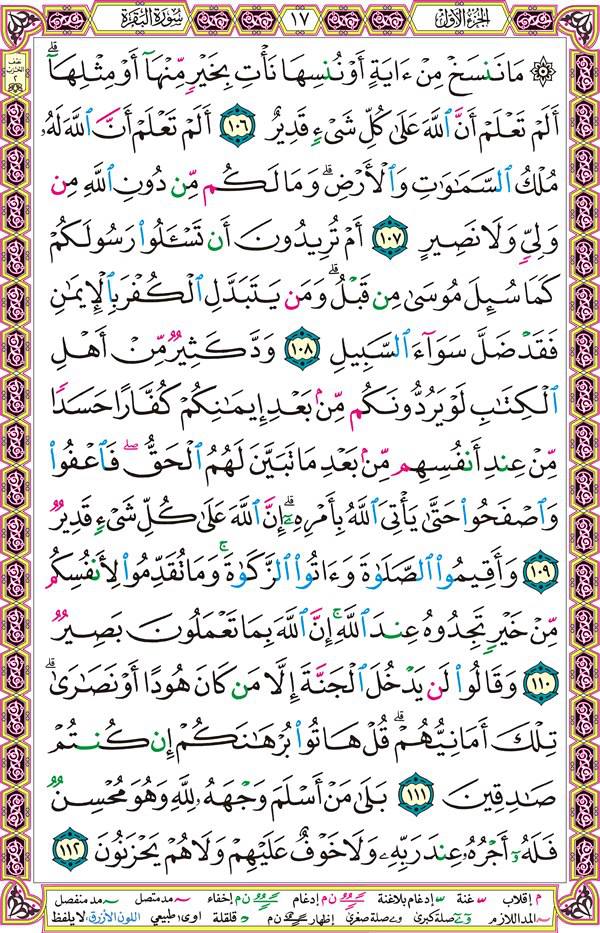 الجزء الأول
١٧
سورة البقرة
نصف
الحزب
٢
۞ مَا نَنسَخْ مِنْ ءَايَةٍ أَوْ نُنسِهَا نَأْتِ بِخَيْرٍ مِّنْهَآ أَوْ مِثْلِهَآ ۗ
أَلَمْ تَعْلَمْ أَنَّ ٱللَّهَ عَلَىٰ كُلِّ شَىْءٍ قَدِيرٌ ١٠٦ أَلَمْ تَعْلَمْ أَنَّ ٱللَّهَ لَهُۥ
مُلْكُ ٱلسَّمَـٰوَٰتِ وَٱلْأَرْضِ ۗ وَمَا لَكُم مِّن دُونِ ٱللَّهِ مِن
وَلِىٍّ وَلَا نَصِيرٍ ١٠٧ أَمْ تُرِيدُونَ أَن تَسْـَٔلُوا۟ رَسُولَكُمْ
كَمَا سُئِلَ مُوسَىٰ مِن قَبْلُ ۗ وَمَن يَتَبَدَّلِ ٱلْكُفْرَ بِٱلْإِيمَـٰنِ
فَقَدْ ضَلَّ سَوَآءَ ٱلسَّبِيلِ ١٠٨ وَدَّ كَثِيرٌ مِّنْ أَهْلِ
ٱلْكِتَـٰبِ لَوْ يَرُدُّونَكُم مِّنۢ بَعْدِ إِيمَـٰنِكُمْ كُفَّارًا حَسَدًا
مِّنْ عِندِ أَنفُسِهِم مِّنۢ بَعْدِ مَا تَبَيَّنَ لَهُمُ ٱلْحَقُّ ۖ فَٱعْفُوا۟
وَٱصْفَحُوا۟ حَتَّىٰ يَأْتِىَ ٱللَّهُ بِأَمْرِهِۦٓ ۗ إِنَّ ٱللَّهَ عَلَىٰ كُلِّ شَىْءٍ قَدِيرٌ
١٠٩ وَأَقِيمُوا۟ ٱلصَّلَوٰةَ وَءَاتُوا۟ ٱلزَّكَوٰةَ ۚ وَمَا تُقَدِّمُوا۟ لِأَنفُسِكُم
مِّنْ خَيْرٍ تَجِدُوهُ عِندَ ٱللَّهِ ۗ إِنَّ ٱللَّهَ بِمَا تَعْمَلُونَ بَصِيرٌ
١١٠ وَقَالُوا۟ لَن يَدْخُلَ ٱلْجَنَّةَ إِلَّا مَن كَانَ هُودًا أَوْ نَصَـٰرَىٰ ۗ
تِلْكَ أَمَانِيُّهُمْ ۗ قُلْ هَاتُوا۟ بُرْهَـٰنَكُمْ إِن كُنتُمْ
صَـٰدِقِينَ ١١١ بَلَىٰ مَنْ أَسْلَمَ وَجْهَهُۥ لِلَّهِ وَهُوَ مُحْسِنٌ
فَلَهُۥٓ أَجْرُهُۥ عِندَ رَبِّهِۦ وَلَا خَوْفٌ عَلَيْهِمْ وَلَا هُمْ يَحْزَنُونَ ١١٢
م إقلاب غنة إدغام بلاغنة ن م إدغام ن م إخفاء مد متصل مد منفصل
المد اللازم صلة كبرى صلة صغرى إظهار ن م قلقلة اوى طبيعي اللون الأزرق لا يلفظ